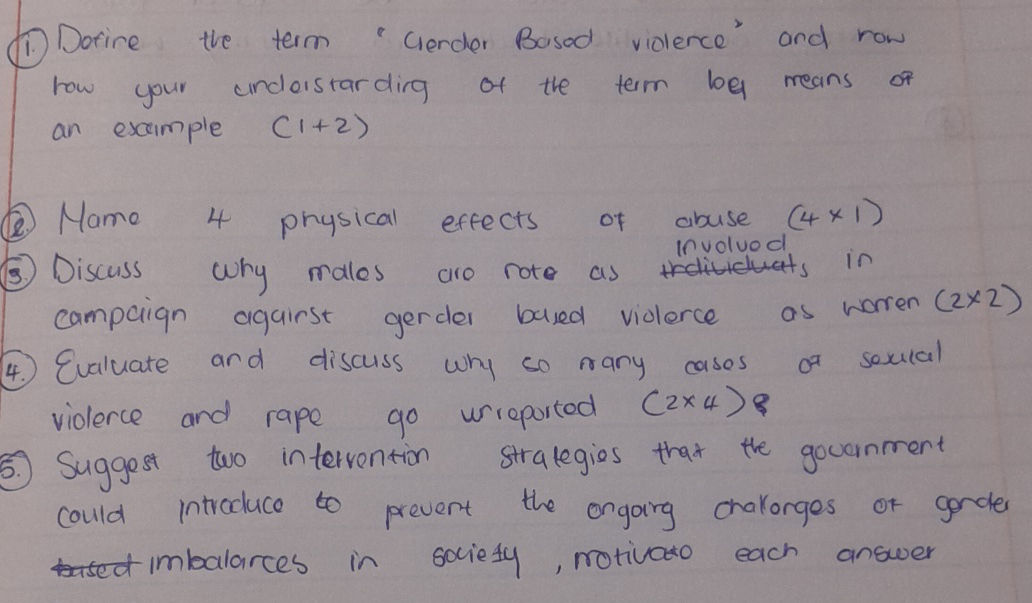 1. Define the term "Gender Based violence" and now
how your understanding of the term by means of
an example (1+2)
2. Name 4 physical effects of abuse (4×1)
involved
3. Discuss why males are note as individuals in
campaign against gender based violence as women (2×2)
4. Evaluate and discuss why so many cases of sexual
violence and rape go unreported (2×4)
5. Suggest two intervention strategies that the government
could introduce to prevent the ongoing challenges of gender
based imbalances in society, motivate each answer